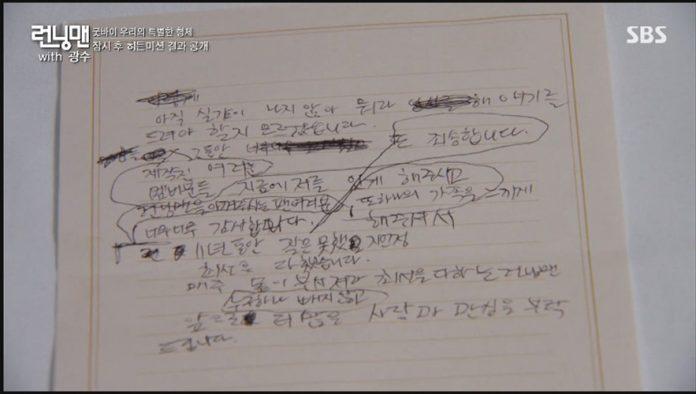 런닝맨
with 광수
굿바이 우리의 특별한 형제
잠시 후 히든미션 결과 공개
SBS
아직 실감이 나지 않아 뭐라 해 얘기를
드려야 할지 모르겠습니다.
그동안 너무너무 또 죄송합니다.
제작진 여러분
멤버분들 지금에 저를 있게 해주시고
런닝맨을 아껴주시는 팬여러분, 또하나의 가족을 느끼게
너무너무 감사합니다. 해주셔서
11년 동안 작은 못했 지만
최선을 다 했습니다.
매주 몸이 부서져라 최선을 다하는 런닝맨
누구하나 빠지지않고
앞으로 더 많은 사랑과 관심을 부탁
드립니다.